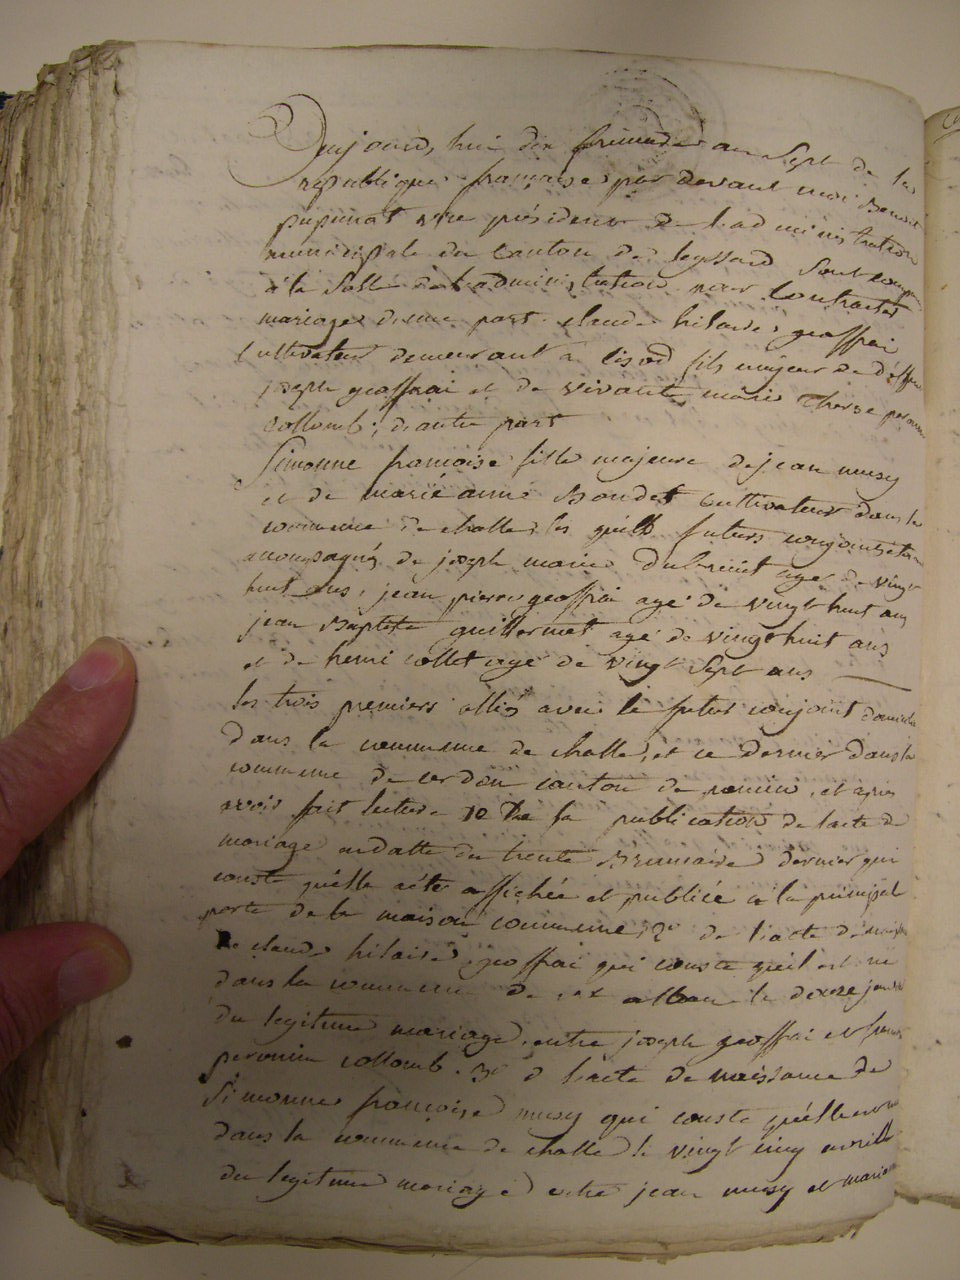 Aujourd, hui dix frimaire an Sept de la
republique française par devant moi Benoit
pupunat vice président de l'administration
municipale du Canton de leyssard Sont
à la Salle de l'administration pour Contracter
mariage d'une part claude hilaire geoffrai
Cultivateur demeurant à fils majeur de
joseph geoffrai et de vivante marie therese
Collomb; d'autre part
Simonne francoise fille majeure de jean musy
et de marie anne Bondet Cultivateur dans la
commune de challes les quels futurs conjoints
accompagnés de joseph marie agé de vingt
huit ans, jean pierre geoffrai agé de vingt huit ans
jean Baptiste guillermet agé de vingt huit ans
et de henri collet agé de vingt Sept ans
les trois premiers alliés avec le futur conjoint
dans la commune de challe, et ce dernier dans la
commune de cerdon canton de poncin, et après
avoir fait lecture de la publication de l'acte de
mariage en datte du trente Brumaire dernier qui
conste qu'elle a été affichée et publiée a la principal
porte de la maison commune, 2° de l'acte de
De claude hilaire geoffrai qui conste qu'il est né
dans la commune de st alban le
du legitime mariage, entre joseph geoffrai et
peronine collomb. 3° d l'acte de naissance de
Simonne francoise musy qui conste qu'elle
dans la commune de challe le vingt cinq avrille
du legitime mariage entre jean musy et marie